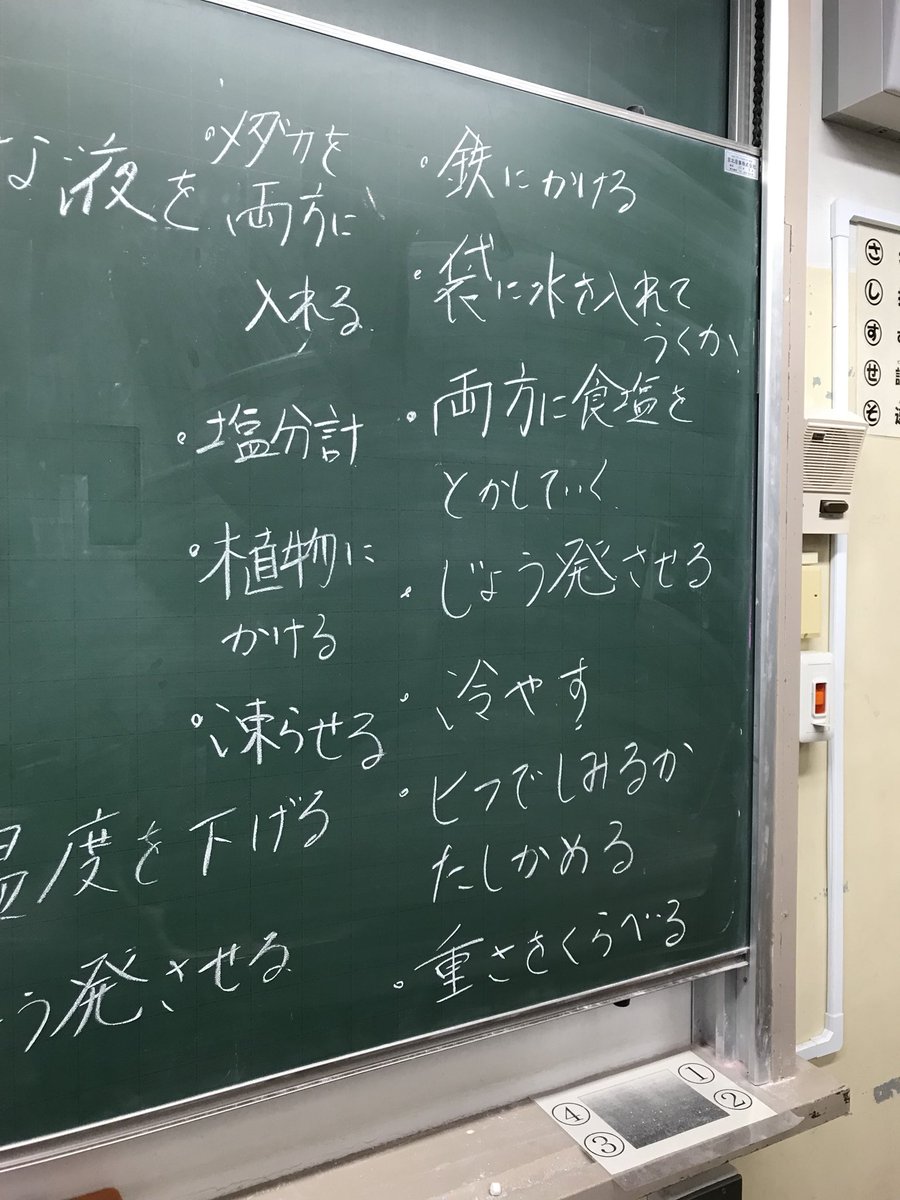 な液を
・メダカを
両方に
入れる
・塩分計
・植物に
かける
・凍らせる
温度を下げる
う発させる
・鉄にかける
・袋に水を入れて
うくか
・両方に食塩を
とかしていく
・じょう発させる
・冷やす
・ヒフでしみるか
たしかめる
・重さをくらべる
さ
し
す
せ
そ
①
②
③
④